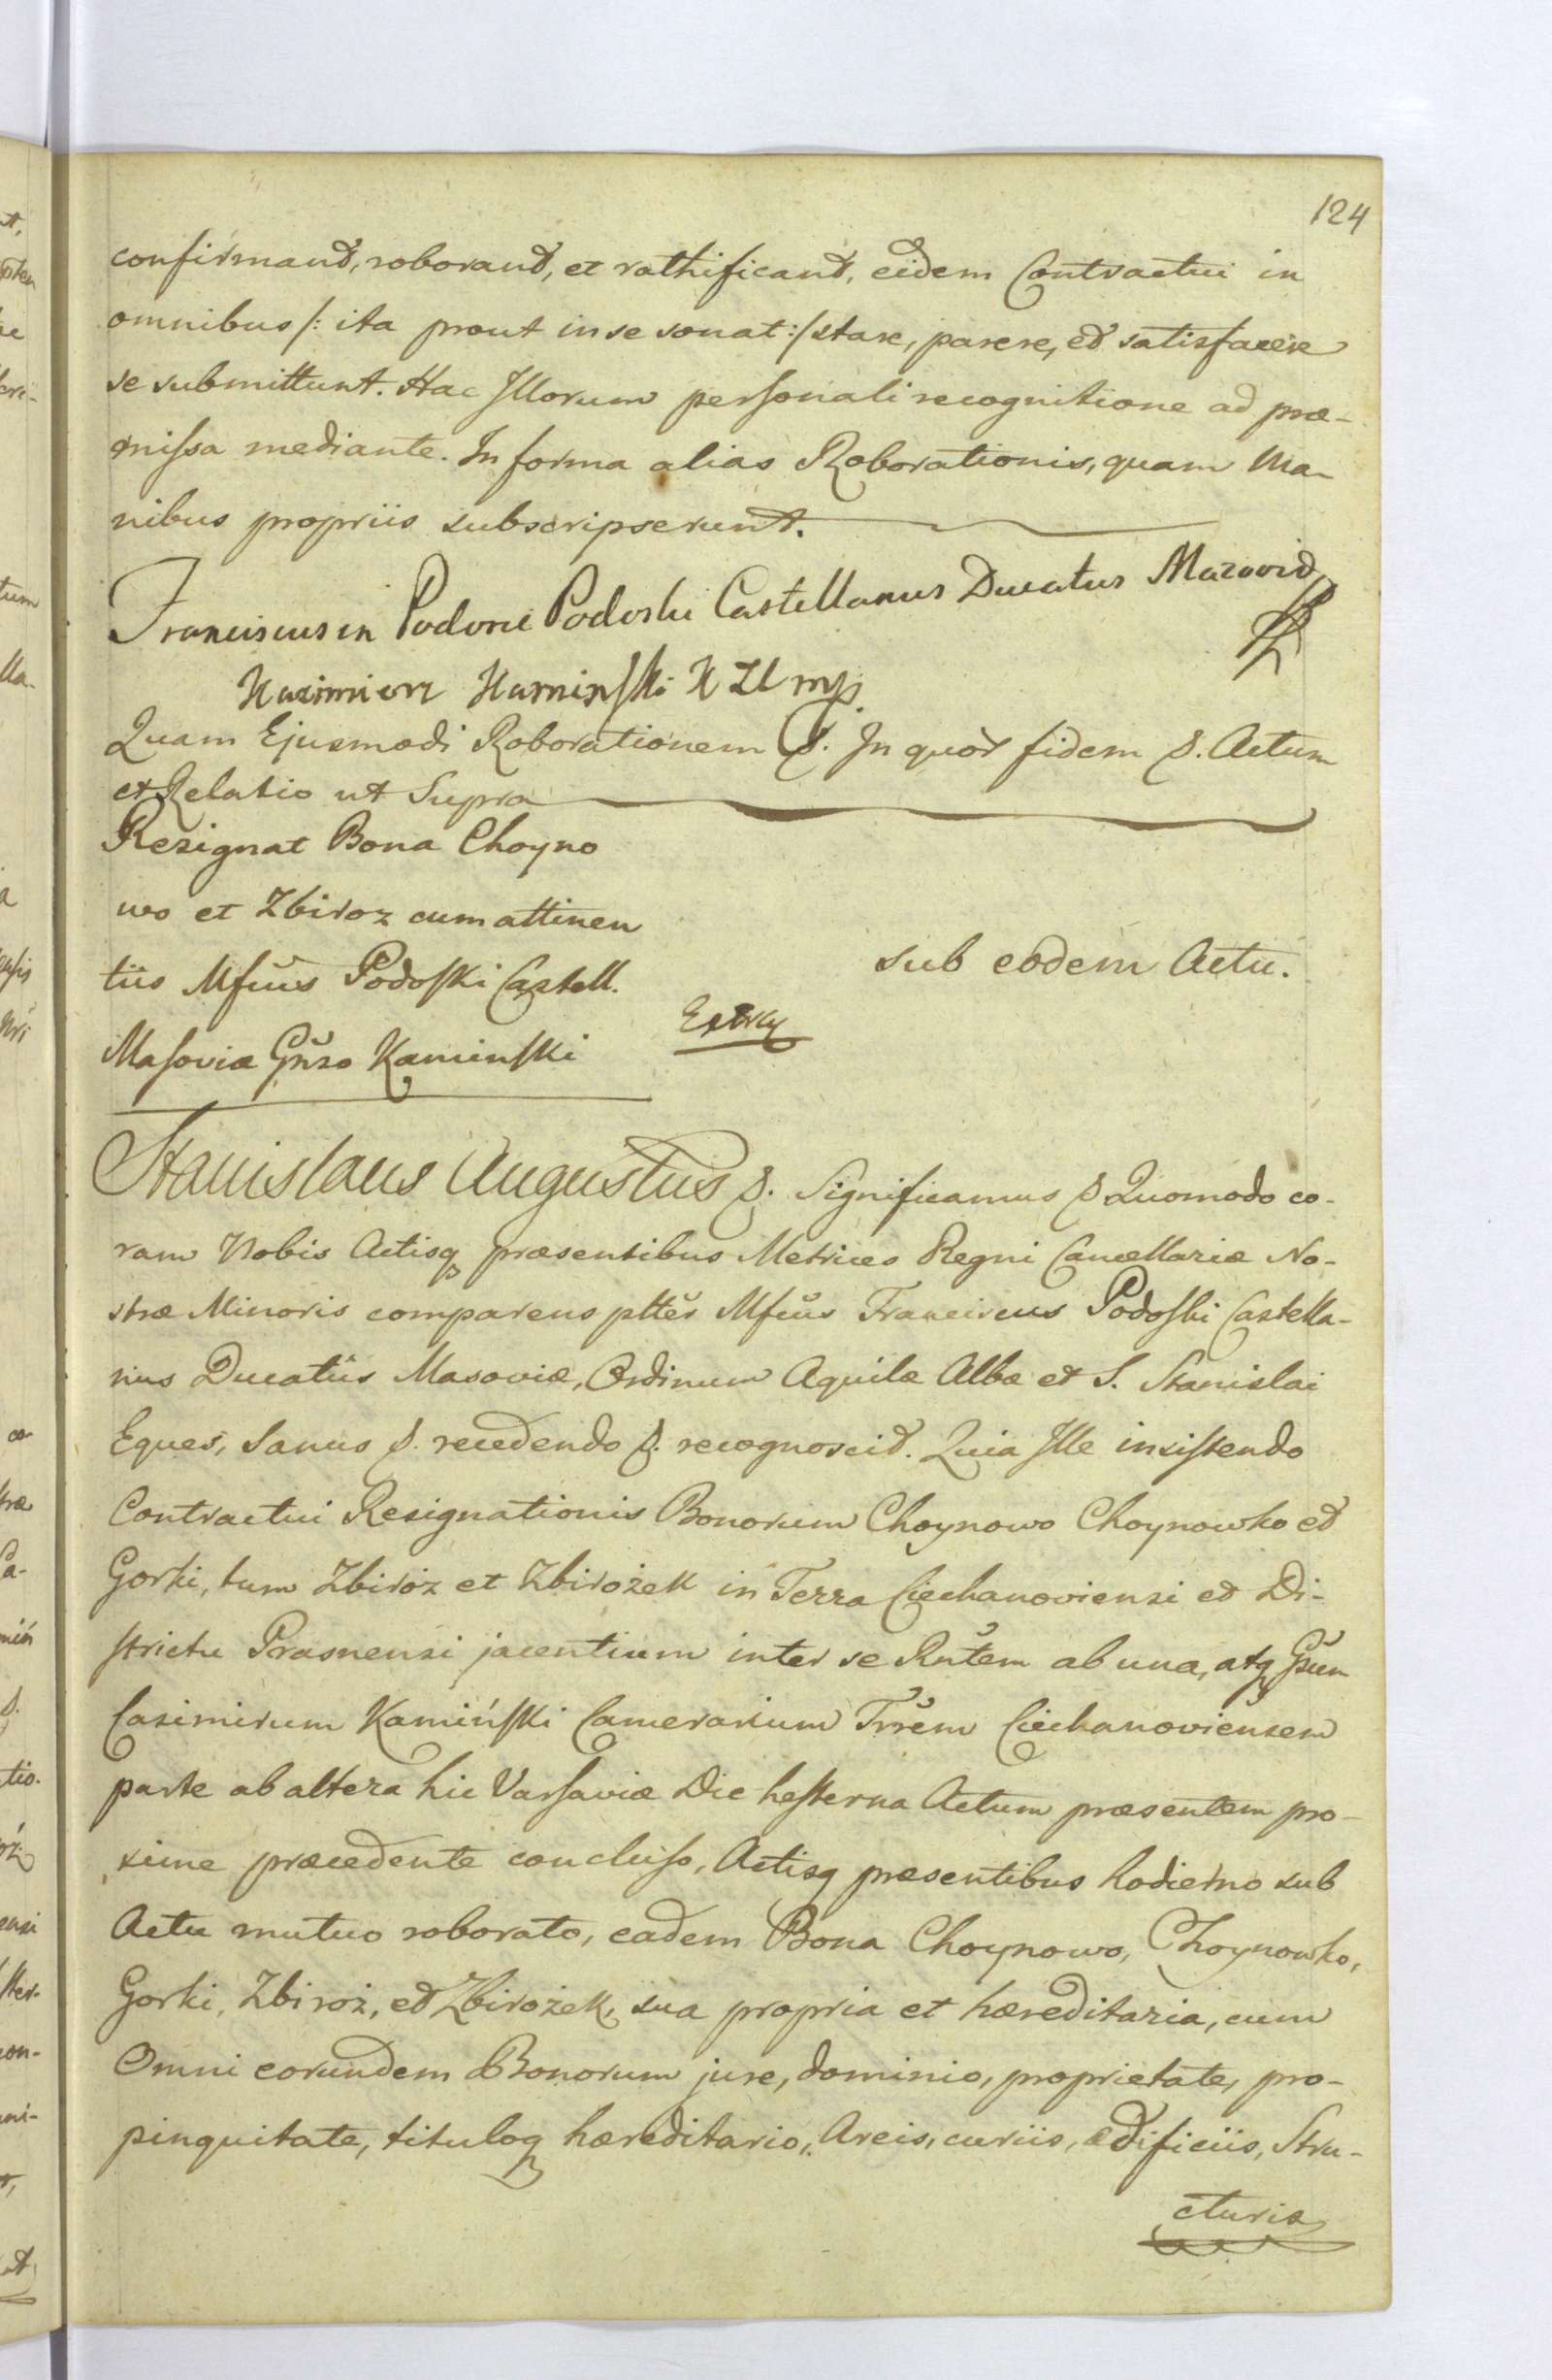 124
confirmand, roborand, et rathificand, eidem Contractui in
omnibus /: ita prout in se sonat :/ stare, parere, et satisfacere
se submittunt. Hac Illorum personali recognitione ad præ-
missa mediante. In forma alias Roborationis, quam Ma-
nibus propriis subscripserunt.
Franciscus in Podorie Podoski Castellanus Ducatus Mazovie
Kazimierz Kaminski K Z C mp.
Quam Ejusmodi Roborationem &. In quor fidem &. Actum
et Relatio ut Supra
Resignat Bona Choyno
wo et Zbiroz cum attinen
tiis Mfcus Podoski Castell.
Masoviæ Gnso Kaminski
Extrad
sub eodem Actu.
Stanislaus Augustus &. Significamus & Quomodo co-
ram Nobis Actisq præsentibus Metrices Regni Cancellariæ No-
stræ Minoris comparens ptter Mfcus Franciscus Podoski Castella-
nus Ducatus Masoviæ, Ordinum Aquilæ Albæ et S. Stanislai
Eques, sanus &. recedendo &. recognovit. Quia Ille insistendo
Contractui Resignationis Bonorum Choynowo Choynowko et
Gorki, tum Zbiroż et Zbirożek in Terra Ciechanoviensi et Di-
strictu Prasnensi jacentium inter se Rntem ab una, atq Gsum
Casimirum Kamiński Camerarium Trrem Ciechanoviensem
parte ab altera hic Varsaviæ Die hesterna Actum præsentem pro-
xime præcedente concluso, Actisq præsentibus hodierno sub
Actu mutuo roborato, eadem Bona Choynowo, Choynowko,
Gorki, Zbiroż, et Zbirożek, sua propria et hæreditaria, cum
Omni eorundem Bonorum jure, dominio, proprietate, pro-
pinquitate, tituloq hæreditario, Areis, curiis, ædificiis, Stru-
cturis